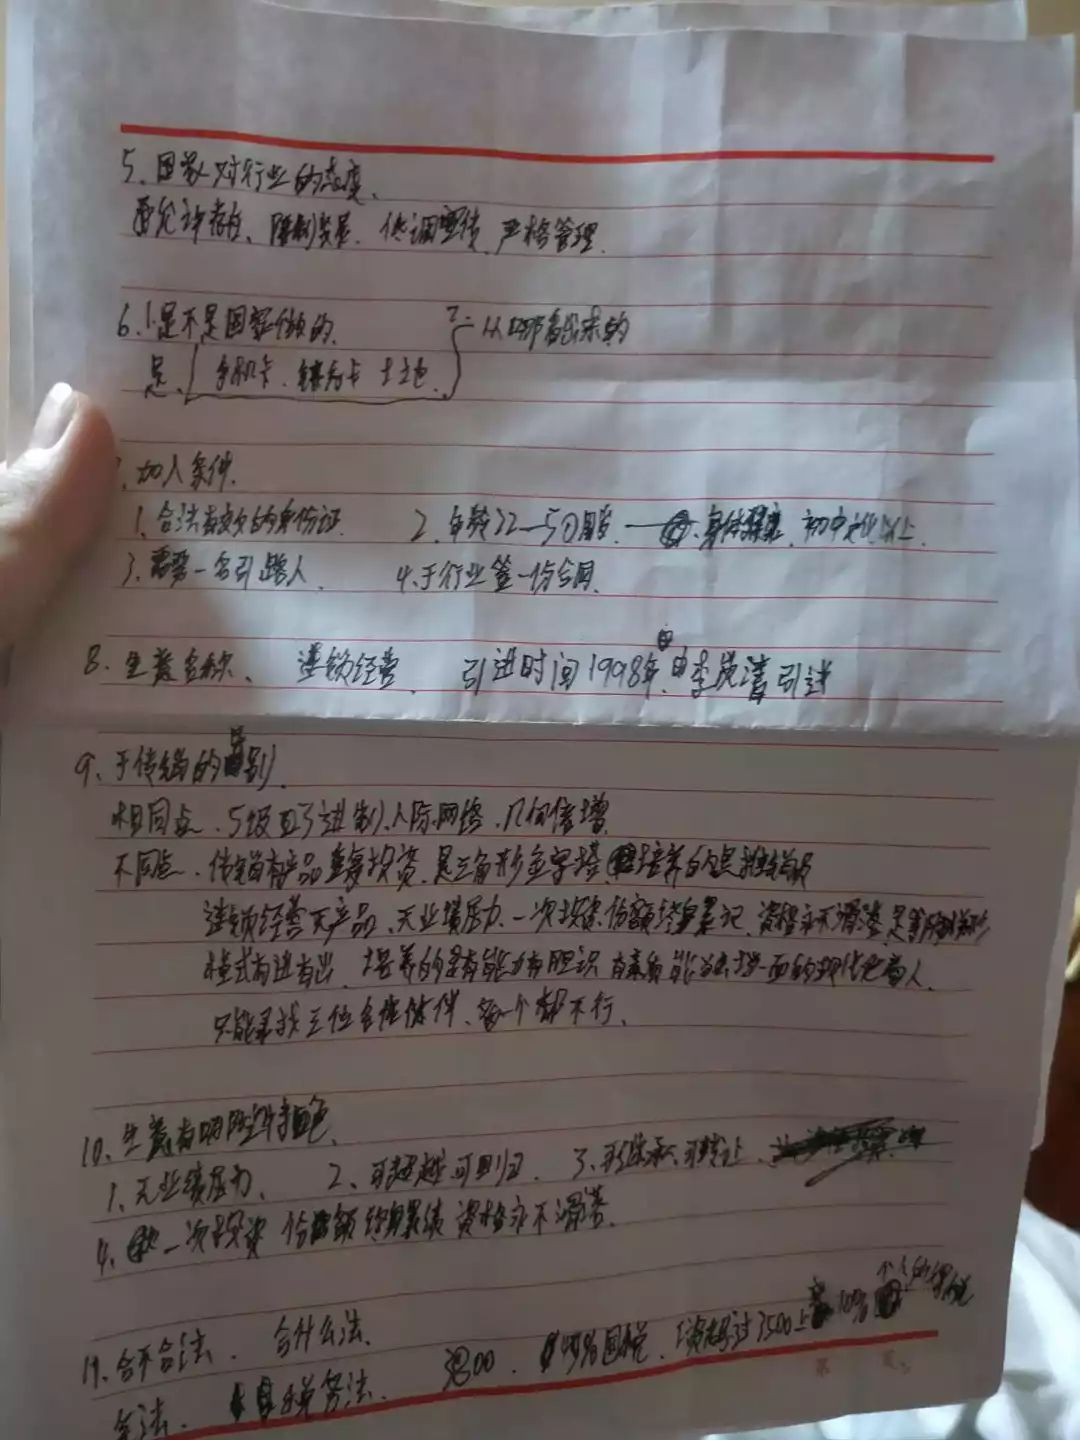 5、国家对行业的态度、
要允许存在、限制发展、低调宣传、严格管理
6、1、是不是国家做的、 2、从哪看出来的
是、手机卡、银行卡 土地
、加入条件、
1、合法有效的身份证 2、年龄22—50周岁 身体健康、初中文化以上、
3、需要一名引路人 4、于行业签一份合同、
8、生意名称、 连锁经营、 引进时间1998年、由李岚清引进
9、于传销的区别、
相同点、5级三进制、人际网络、几何倍增
不同点、传销有产品 重复投资、是三角形金字塔、培养的
连锁经营无产品、无业绩压力、一次投资 份额终身累记、资格永不滑落、是
模式有进有出、培养的是有能力有胆识 有素质能独挡一面的现代化商人、
只能寻找三位合作伙伴、多一个都不行、
10、生意有哪些特色
1、无业绩压力、 2、可超越可回归、 3、可继承可转让、
4、一次投资 份额终身累绩 资格永不滑落、
11、合不合法、 合什么法、
合法、 税务法、 45%国税、 超过3500上 10% 个人所得税
第 页、